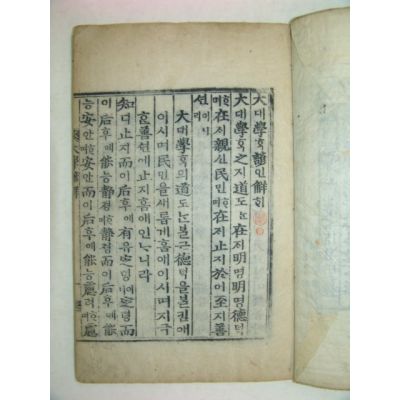 大대學학諺언解ᄒᆡ
大대學학之지道도ᄂᆞᆫ在ᄌᆡ明명明명德덕
ᄒᆞ며在ᄌᆡ親신民민ᄒᆞ며在ᄌᆡ止지於어至지善
션이니라
大대學학의道도ᄂᆞᆫ볼근德덕을볼킴애
이시며民민을새롭게홈애이시며지극
ᄒᆞᆫ善션에止지홈애인ᄂᆞ니라
知디止지而이后후에有유定뎡이니定뎡而
이后후에能능靜졍ᄒᆞ며靜졍而이后후에能
능安안ᄒᆞ며安안而이后후에能능慮려ᄒᆞ며慮려
大學諺解